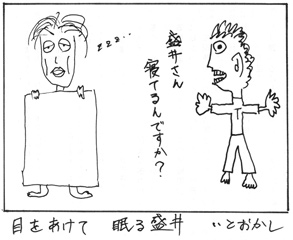 zzz...
盛井さん
寝てるんですか?
目をあけて 眠る盛井 いとおかし